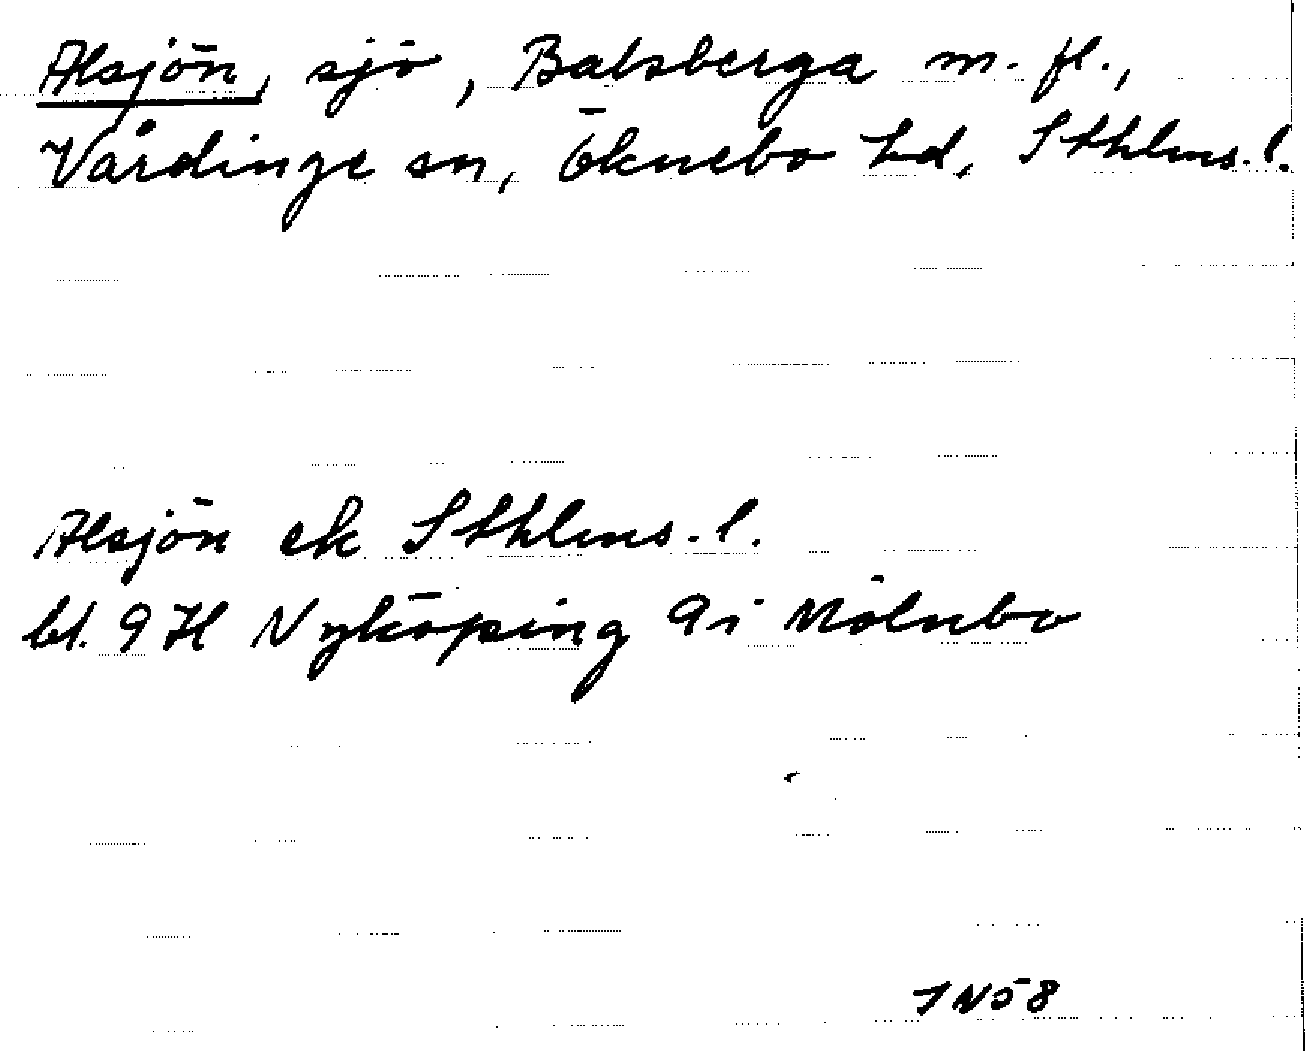 Alsjön, sjö, Batsberga m. fl.,
Vårdinge sn, Öknebo hd, Sthlms. l.
Alsjön ek Sthlms. l.
bl. 9H Nyköping 9i Mölnbo